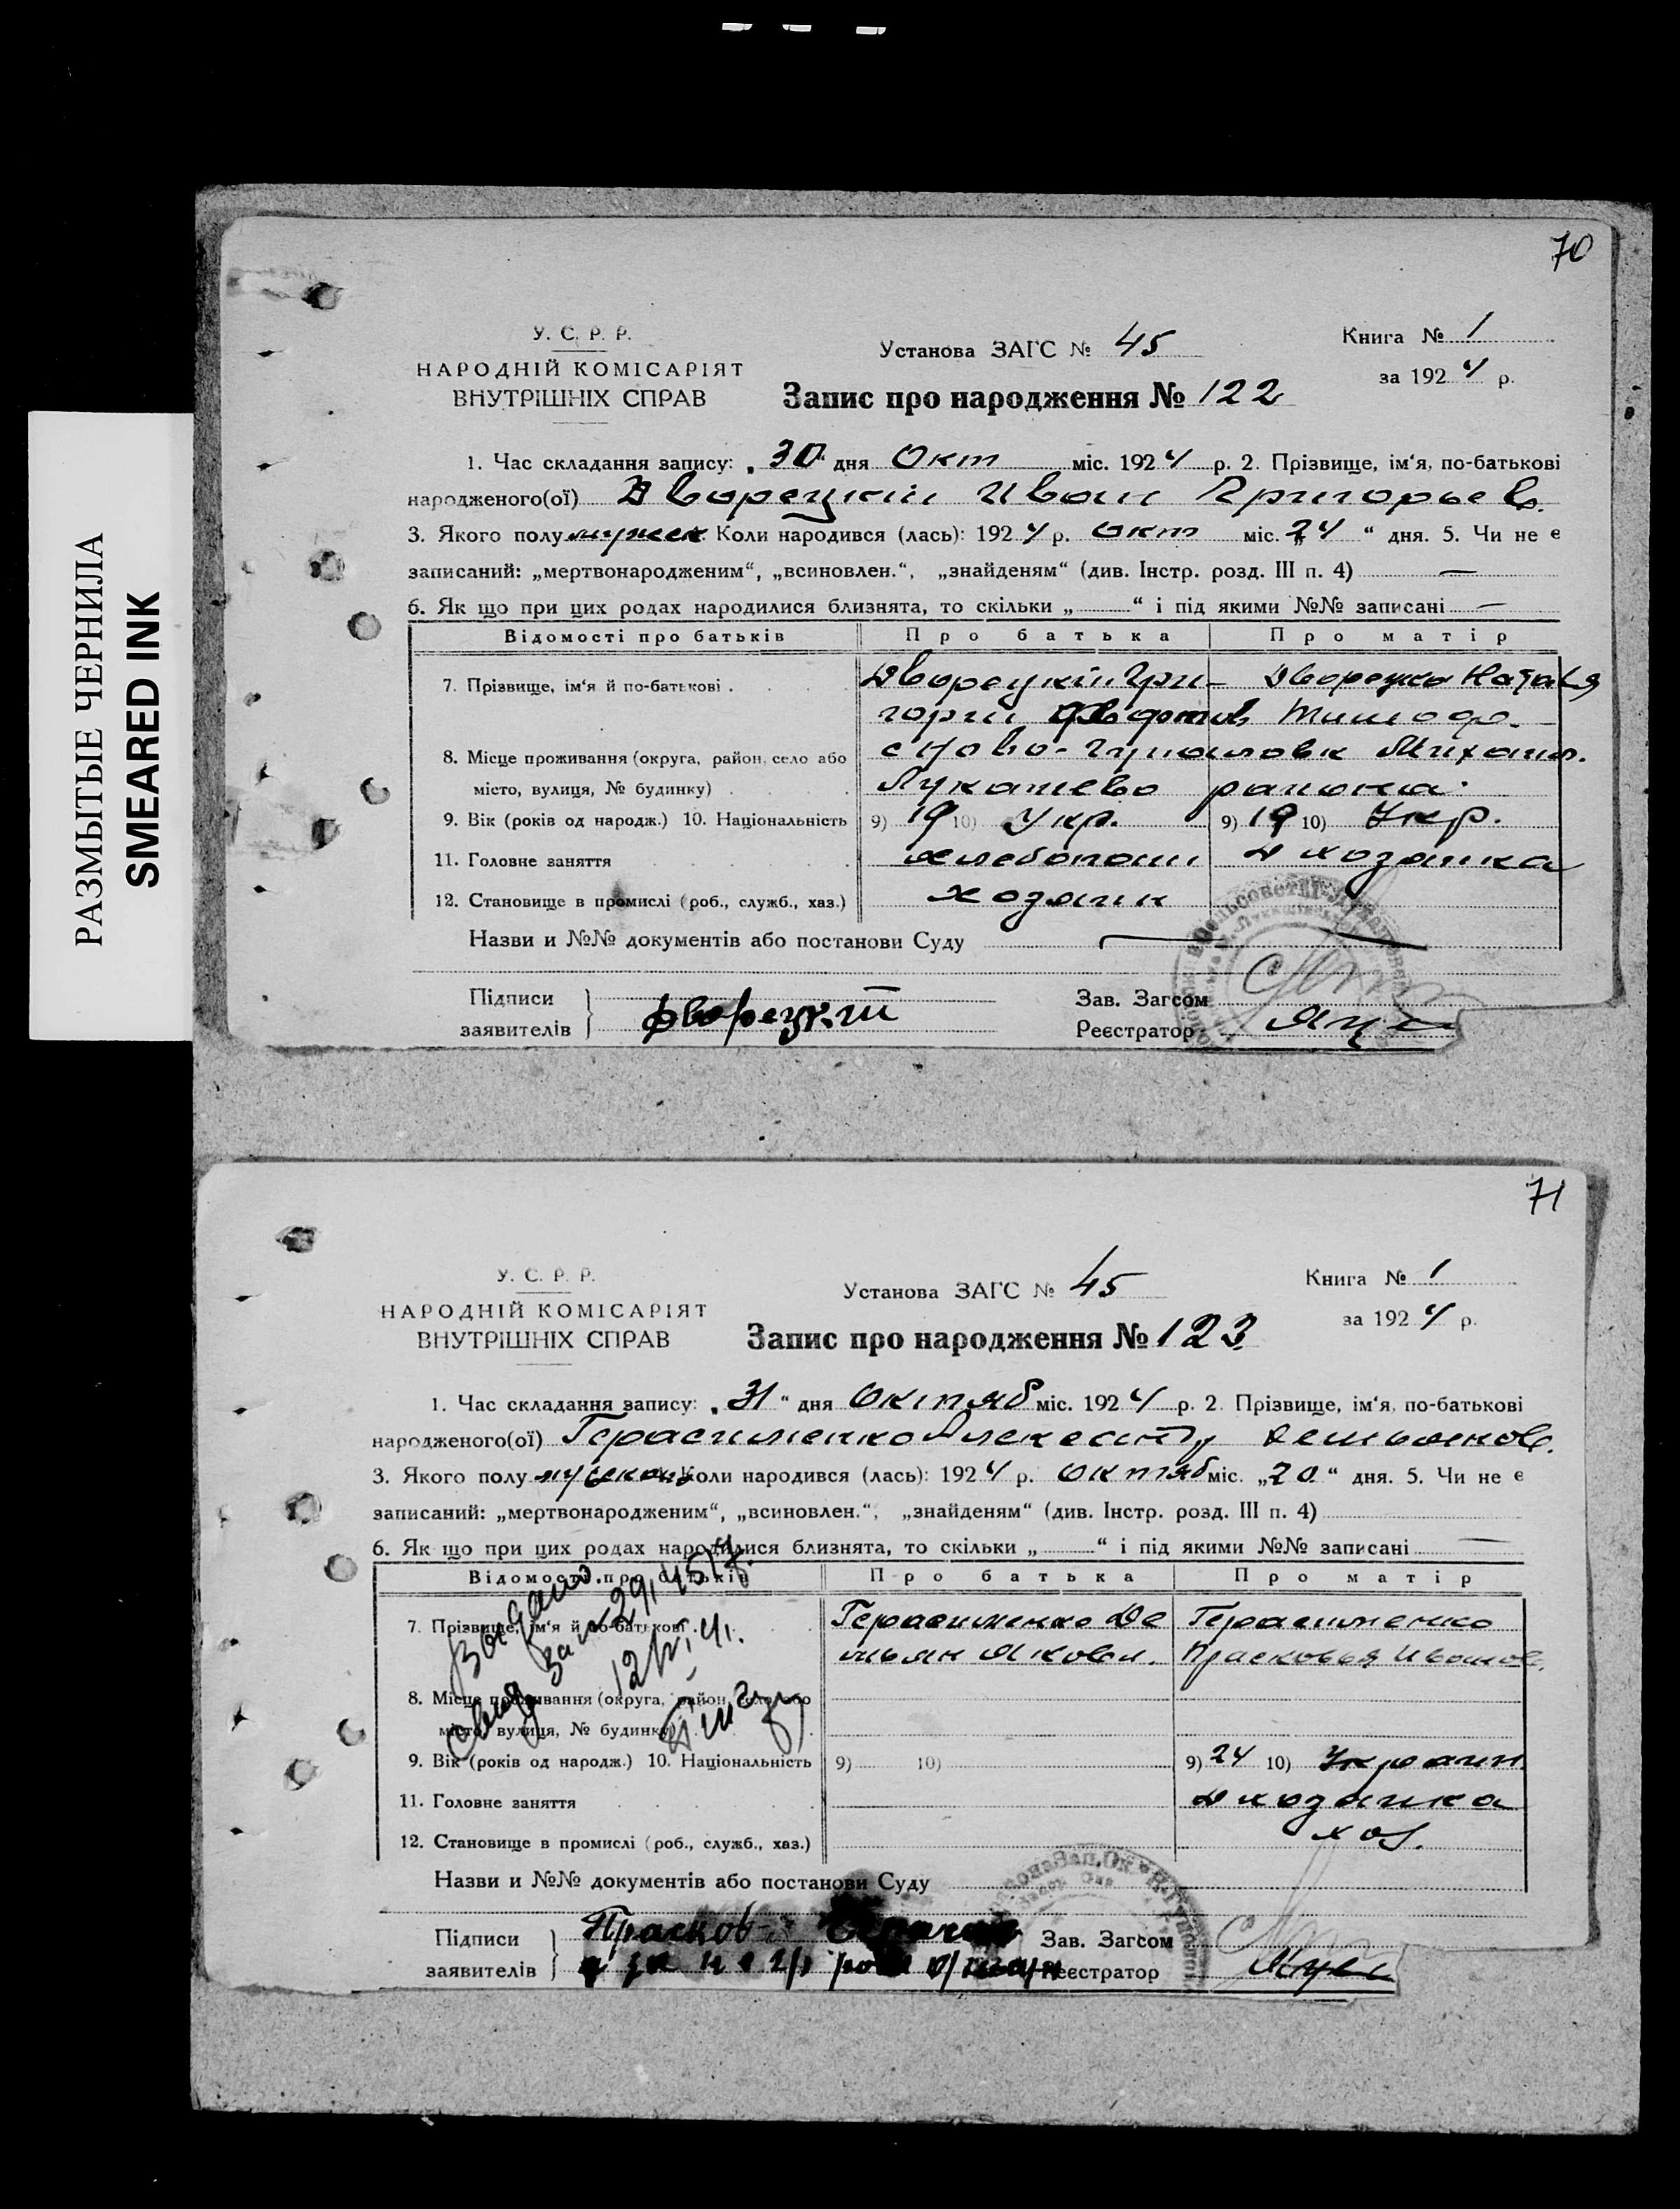 РАЗМЫТЫЕ ЧЕРНИЛА
SMEARED INK
70
У. С. Р. Р.
НАРОДНІЙ КОМІСАРІЯТ
ВНУТРІШНІХ СПРАВ
Установа ЗАГС № 45
Книга № 1
за 1924 р.
Запис про народження № 122
1. Час складання запису: „30“ дня Окт міс. 1924 р. 2. Прізвище, ім‘я, по-батькові
народженого(ої) Дворецкий Иван Григорьев.
3. Якого полу мужск. Коли народився (лась): 1924 р. окт міс. „24“ дня. 5. Чи не є
записаний: „мертвонародженим“, „всиновлен.“, „знайденям“ (див. Інстр. розд. III п. 4) —
6. Як що при цих родах народилися близнята, то скільки „ “ і під якими №№ записані —
Відомості про батьків Про батька Про матір
7. Прізвище, ім‘я й по-батькові . Дворецкий Гри- Дворецка Наталя
горий Тимоф.
8. Місце проживання (округа, район, село або с Ново- Михайл.
місто, вулиця, № будинку) Лукашево района
9. Вік (років од народж.) 10. Національність 9) 19 10) Укр. 9) 19 10) Укр.
11. Головне заняття хлебопаш д хозяйка
12. Становище в промислі (роб., служб., хаз.) хозяин
Назви и №№ документів або постанови Суду —
Підписи
заявителів
Дворецкий
Зав. Загсом
Реєстратор
71
У. С. Р. Р.
НАРОДНІЙ КОМІСАРІЯТ
ВНУТРІШНІХ СПРАВ
Установа ЗАГС № 45
Книга № 1
за 1924 р.
Запис про народження № 123
1. Час складання запису: „31“ дня Октяб міс. 1924 р. 2. Прізвище, ім‘я, по-батькові
народженого(ої) Герасименко Демьянов.
3. Якого полу мужской Коли народився (лась): 1924 р. октяб міс. „20“ дня. 5. Чи не є
записаний: „мертвонародженим“, „всиновлен.“, „знайденям“ (див. Інстр. розд. III п. 4)
6. Як що при цих родах народилися близнята, то скільки „ “ і під якими №№ записані —
Відомості про батьків Про батька Про матір
7. Прізвище, ім‘я й по-батькові . Герасименко Де Герасименко
мьян Яковл. Прасковья Иванов.
8. Місце проживання (округа, район, село або
місто, вулиця, № будинку)
9. Вік (років од народж.) 10. Національність 9) 10) 9) 24 10) Украин
11. Головне заняття д хозяйка
12. Становище в промислі (роб., служб., хаз.) хоз.
Выдано
Назви и №№ документів або постанови Суду
Підписи
заявителів
Зав. Загсом
Реєстратор